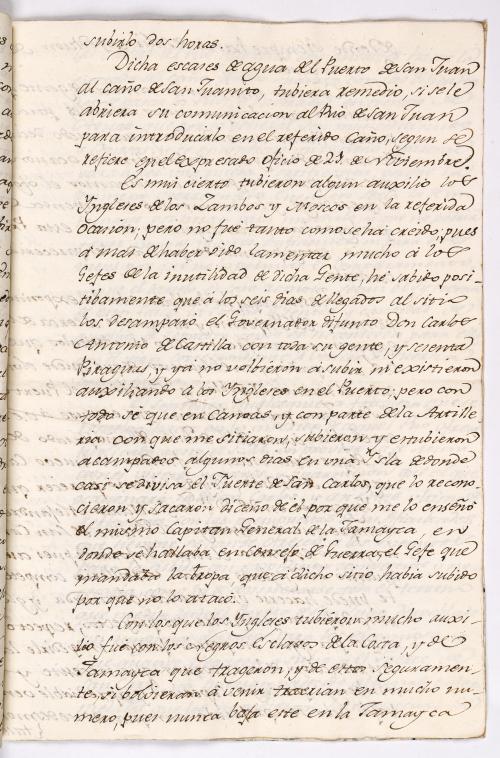 subirlo dos horas.
Dicha escases de agua del Puerto de San Juan
al caño de San Juanito, tubiera remedio, si se le
abriera su comunicacion al Rio de San Juan
para introducirlo en el referido Caño, segun se
refiere en el expresado Oficio de 23 de Noviembre.
Es mui cierto tubieron algun auxilio los
Yngleses de los Zambos y Moscos en la referida
Ocacion, pero no fue tanto como se há creido, pues
á mas de haber oido lamentar mucho á los
Gefes de la inutilidad de dicha Gente, hé sabido posi-
tibamente que á los seis dias de llegados al sitio
los desamparó el Governador difunto Don Carlos
Antonio de Castilla con toda su gente, y sesenta
Piraguas, y ya no volbieron á subir ni existieron
auxiliando á los Yngleses en el Puerto; pero con
todo sé que en Canoas, y con parte de la Artille
ria con que me sitiaron, subieron y estubieron
acampados algunos dias en una Ysla de donde
casi se divisa el Fuerte de San Carlos, que lo recono-
cieron y sacaron diceño de el por que me lo enseñó
el mismo Capitan General de la Jamayca, en
donde se hallaba en Consejo de Guerra, el Gefe que
mandaba la tropa, que á dicho sitio habia subido
por que no lo atacó.
Con los que los Yngleses tubieron mucho auxi-
lio fué con los Negros Esclabos de la Costa, y de
Jamayca que trageron, y de estos seguramen-
te, si bolbieran á venir traerian en mucho nu-
mero, pues nunca baja este en la Jamayca